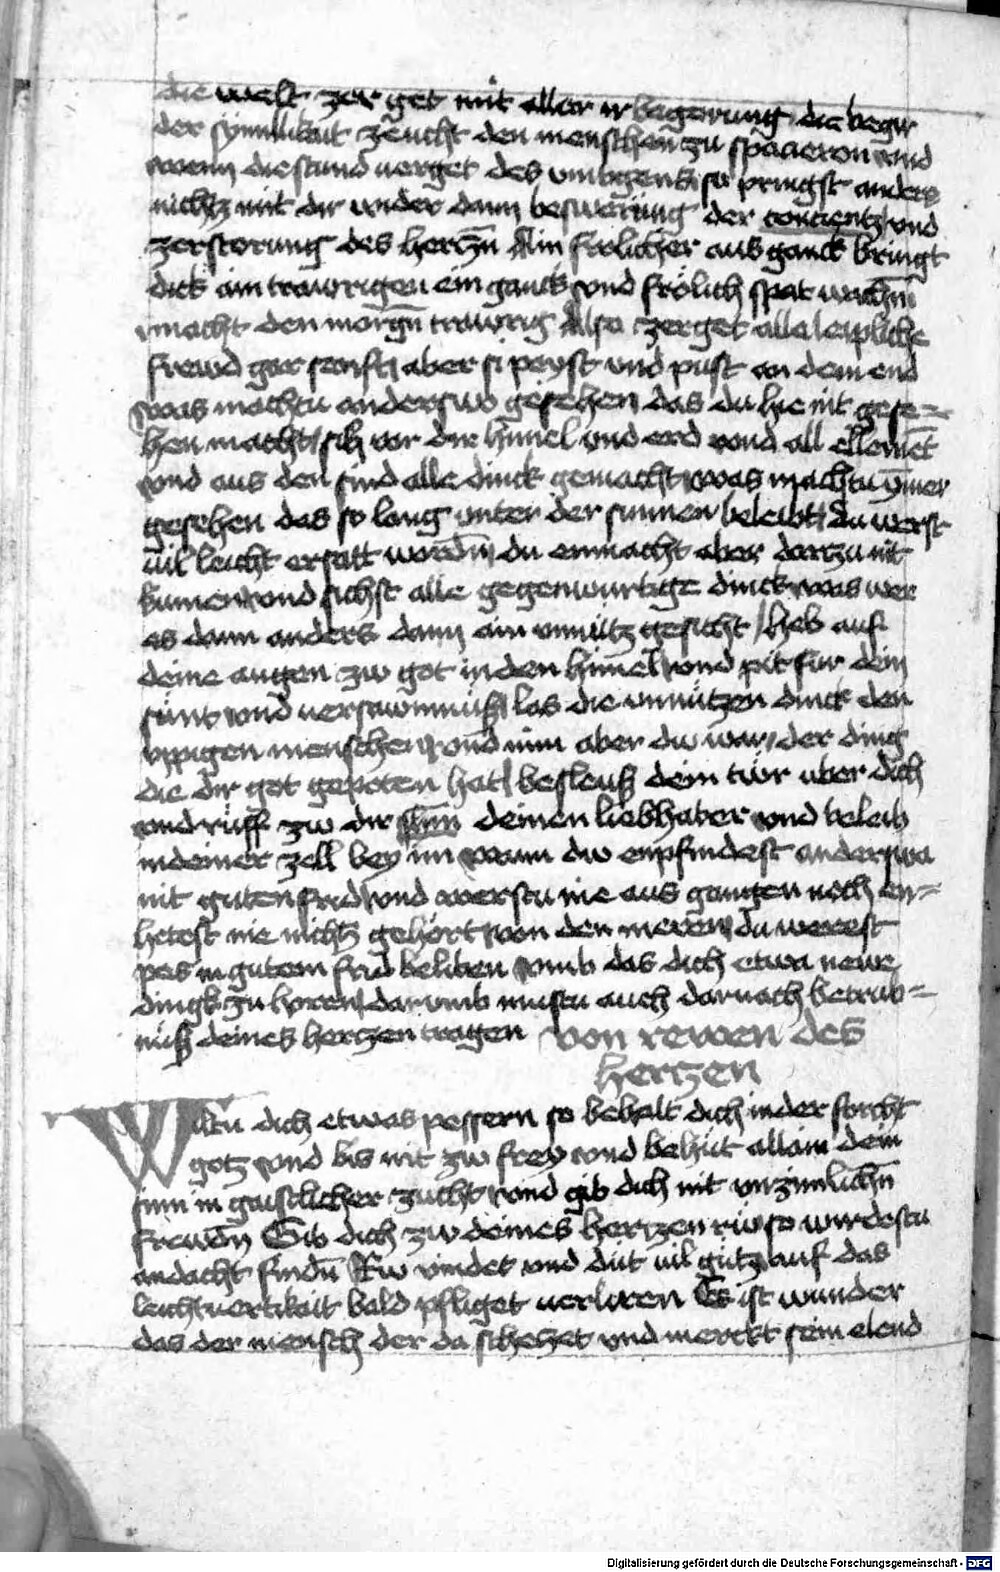 die welt zer get mit aller ir begerung die begir
der synnlikait zeucht den menschen zu spacieren vnd
wenn die stund verget des vmbgens so pringst anders
nichtz mit dir wider dann beswerung der concientz vnd
zerstorung des hertzn Ain frolicher aus ganck bringt
dick ain trawrigen ein ganck vnd frölich spat wachn
macht den morgn trawrig Also zerget alle leipliche
frewd gar senft aber si peyst vnd an dem end
was machtu anderswo gesehen das du hie nit gese=
hen macht sih vor dir himel vnd erd vnd all ellement
vnd aus den sind alle dinck gemacht was machtu ymer
gesehen das so lang vnter der sunnen beleibt du werst
vil leicht ersatt werdn du enmacht aber darzu nit
kumen vnd sichst alle gegenwurtige dinck was wer
es dann anders dann ain vnnütz gesicht heb auf
deine augen zw got in den himel vnd pit fur dein
sünd vnd versawmnüß las die vnnützen dinck den
vppigen menschen vnd nim aber dw war der ding
die dir got gepoten hat besleuß dein tür uber dich
vnd rüff zw dir deinen liebhaber vnd beleib
in deiner zell bey im wann dw enpfindest anderswa
nit guten frid vnd werstu nie aus gangen noch en=
hetest nie nichtz gehört von den meren du werest
pas in gutem frid beliben vmb das dich etwa newe
dingk zu horen darumb mustu auch darnach betrub=
nüß deines hertzen tragen von rewen des
hertzen
Wiltu dich etwas pessern so behalt dich in der forcht
gotz vnd bis nit zw frey vnd behüt allain dein
sinn in gaistlicher zucht vnd gib dich nit vnzimlichn
frewdn Gib dich zw deines hertzen rüw so wirdestu
andacht findn Rw vindet vnd düt vil gütz auf das
leichtuertikait bald pfliget verliren Es ist wunder
das der mensch der da schehet vnd merckt sein elend